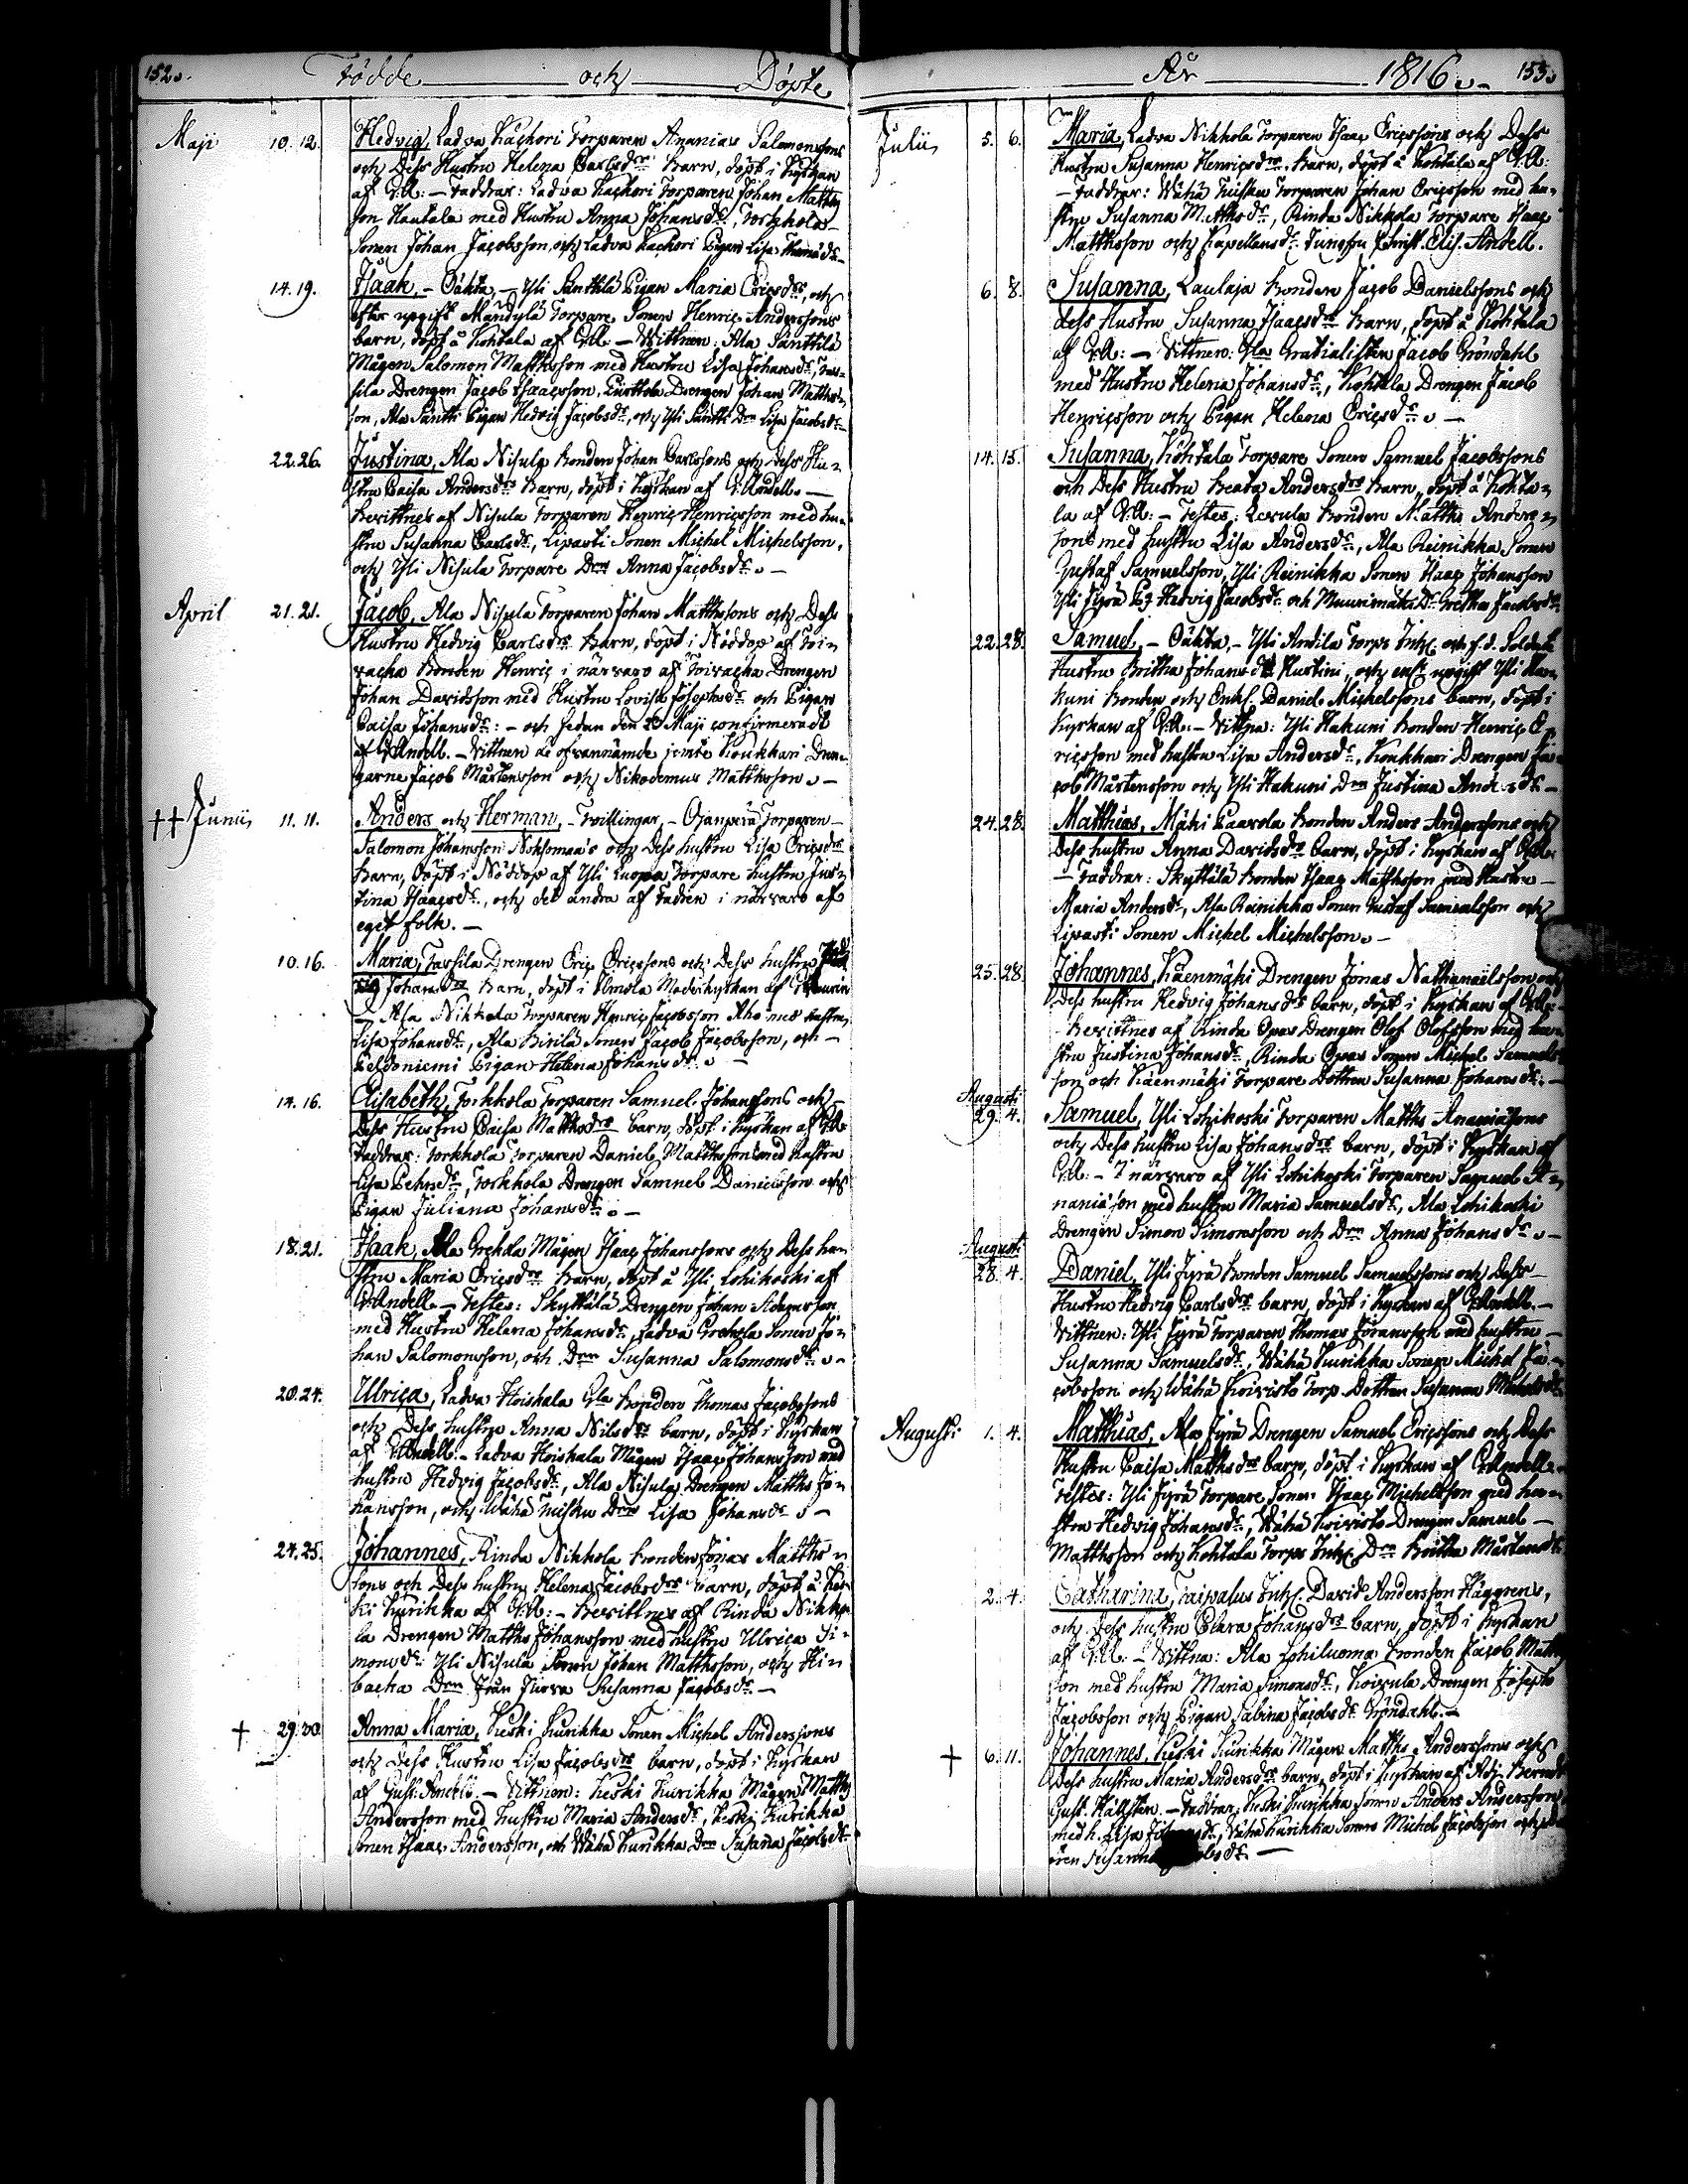 152. Födde och Döpte
Maji 10. 12. Hedvig, Ladva Kackori Torparen Ananias Salomonssons
och Dess Hustru Helena Carlsdrs Barn, döpt i Kyrkan
af G:A: – Faddrar: Ladva Kackori Torparen Johan Matths
son Hautala med Hustru Anna Johansdr, Torkkola
Sonen Johan Jacobsson, och Ladva Kackori Pigan Lisa
14. 19. Isaak, – Oäkta, – Yli Säntti Pigan Maria Ericsdrs, och
efter upgift Mandylä Torpare Sonen Henric Anderssons
barn, döpt å Kohtala af G:A: – Vittnen: Ala Säntti
Mågen Salomon Matthsson med Hustru Lisa Johansdr, Tas-
sila Drengen Jacob Isaacsson, Drengen Johan Matths-
son, Ala Säntti Pigan Hedvig Jacobsdr, och Yli Säntti Drn Lisa Jacobsdr
22. 26. Justina, Ala Nisula Bonden Johan Carlssons och Dess Hu-
stru Caisa Andersdrs Barn, döpt i Kyrkan af G:Andell. –
Bevittnes af Nisula Torparen Henric Henricsson med hu-
stru Susanna Carlsdr, Lipasti Sonen Michel Michelsson,
och Yli Nisula Torpare Drn Anna Jacobsdr. –
April 21. 21. Jacob, Ala Nisula Torparen Johan Matthssons och Dess
Hustru Hedvig Carlsdrs Barn, döpt i Nöddop af Toi-
vacka Bonden Henric i närvaro af Toivacka Drengen
Johan Davidsson med Hustru Lovisa Josephsdr och Pigan
Caisa Johansdr: – och sedan den 26 Maji confirmeradt
af G:Andell. – Vittnen de ofvannämde jemte Koukkari Dren-
garne Jacob Mårtensson och Nikodemus Matthsson. –
†† Junii 11. 11. Anders och Herman, – Tvillingar, – Ojanperä Torparen –
Salomon Johansson Noksomaa's och Dess hustru Lisa Ericsdrs
Barn, döpt i Nöddop af Yli Luopa Torpare hustru Jus-
tina Isaacsdr, och det andra af Fadren i närvaro af
eget folk. –
10. 16. Maria, Tassila Drengen Eric Ericssons och Dess hustru Hed-
vig Johansdrs Barn, döpt i Ilmola Moderkyrkan af
– Ala Nikkola Torparen Henric Jacobsson Aho med hustru
Lisa Johansdr, Ala Pirilä Sonen Jacob Jacobsson, och –
Peldoniemi Pigan Helena Johansdr. –
14. 16. Elisabeth, Torkkola Torparen Samuel Johanssons och
Dess Hustru Caisa Matthsdrs barn, döpt i Kyrkan af G:A:
Faddrar: Torkkola Torparen Daniel Matthsson med hustru
Lisa Pehrsdr, Torkkola Drengen Samuel Danielsson och
Pigan Juliana Johansdr. –
18. 21. Isaak, Ala Grekola Mågen Isaac Johanssons och Dess hu-
stru Maria Ericsdrs Barn, döpt å Yli Lohikoski af
G:Andell. – Testes: Skyttälä Drengen Johan Adamsson
med Hustru Helena Johansdr, Ladva Grekola Sonen Jo-
han Salomonsson, och Drn Susanna Salomonsdr. –
20. 24. Ulrica, Ladva Hoiskala Gla Bonden Thomas Jacobssons
och Dess hustru Anna Nilsdrs barn, döpt i Kyrkan
af G:Andell. – Ladva Hoiskala Mågen Isaac Johansson med
hustru Hedvig Jacobsdr, Ala Nisula Drengen Matths Jo-
hansson, och Wähä Tuisku Drn Lisa Johansdr. –
24. 25. Johannes, Rinda Nikkola Bonden Jonas Matths-
sons och Dess hustru Helena Jacobsdrs barn, döpt å Kes-
ki Kurikka af G:A: – Bevittnes af Rinda Nikko-
la Drengen Matths Johansson med hustru Ulrica Si-
monsdr. Yli Nisula Sonen Johan Matthsson, och Hin-
backa Drn från Jurva Susanna Jacobsdr. –
† 29. 30. Anna Maria, Keski Kurikka Sonen Michel Anderssons
och Dess Hustru Lisa Jacobsdrs barn, döpt i Kyrkan
af Gust: Andell. – Vittnen: Keski Kurikka Mågen Matths
Andersson med hustru Maria Andersdr, Keski Kurikka
Sonen Isaac Andersson, och Wähä Kurikka Drn Susanna Jacobsdr
År 1816. 153.
Julii 5. 6. Maria, Ladva Nikkola Torparen Isaac Ericssons och Dess
Hustru Susanna Henricsdrs Barn, döpt å Kohtala af G:A:
– Faddrar: Wähä Tuisku Torparen Johan Ericsson med hu-
stru Susanna Matthsdr, Rinda Nikkola Torpare Isaac
Matthsson och Kapellansdr Jungfru Christ. Elis. Andell.
6. 8. Susanna, Laulaja Bonden Jacob Danielssons och
dess Hustru Susanna Isaacsdrs Barn, döpt å Kohtala
af G:A: – Vittnen: Gla Gratialisten Jacob Gröndahl
med Hustru Helena Johansdr, Kohtala Drengen Jacob
Henricsson och Pigan Helena Ericsdr. –
14. 15. Susanna, Kohtala Torpare Sonen Samuel Jacobssons
och Dess Hustru Beata Andersdrs Barn, döpt å Kohta-
la af G:A: – Testes: Levula Bonden Matths Anders-
sons med hustru Lisa Andersdr, Ala Reinikka Sonen
Gustaf Samuelsson, Yli Reinikka Sonen Isaac Johansson
Yli Jyrä Pig Hedvig Jacobsdr och Muurimäki Dr Gretha Jacobsdr
22. 28. Samuel, – Oäkta, – Yli Andila Torps Inh. och f.d. Soldate
Hustru Britha Johansdr Hustini, och enl. upgift Yli Ha-
kuni Bonden och Enkl. Daniel Michelssons barn, döpt i
Kyrkan af G:A: – Vittna: Yli Hakuni Bonden Henric E-
ricsson med hustru Lisa Andersdr, Koukkari Drengen Ja-
cob Mårtensson och Yli Hakuni Drn Justina Andersdr. –
24. 28. Matthias, Mäki Paavola Bonden Anders Anderssons och
Dess hustru Anna Davidsdrs barn, döpt i Kyrkan af G:A:
– Faddrar: Skyttälä Bonden Isaac Matthsson med Hustru –
Maria Andersdr, Ala Reinikka Sonen Gustaf Samuelsson och
Lipasti Sonen Michel Michelsson. –
25. 28. Johannes, Käenmäki Drengen Jonas Nathanaelsson och
Dess hustru Hedvig Johansdrs barn, döpt i Kyrkan af G:A: –
Bevittnes af Rinda Opas Drengen Olof Olofsson med hu-
stru Justina Johansdr, Rinda Opas Sonen Michel Samuels-
son och Käenmäki Torpare Dottren Susanna Johansdr. –
Augusti
29. 4. Samuel, Yli Lohikoski Torparen Matths Ananiaesons
och Dess hustru Lisa Johansdrs barn, döpt i Kyrkan af
G:A: – I närvaro af Yli Lohikoski Torparen Samuel A-
naniaeson med hustru Maria Samuelsdr, Ala Lohikoski
Drengen Simon Simonsson och Drn Anna Johansdr. –
Augusti
28. 4. Daniel, Yli Jyrä Bonden Samuel Samuelssons och Dess –
Hustru Hedvig Carlsdrs barn, döpt i Kyrkan af G:Andell. –
Vittnen: Yli Jyrä Torparen Thomas Göransson med hustru –
Susanna Samuelsdr, Wähä Kurikka Sonen Michel Ja-
cobsson och Wähä Koivisto Torp Dottren Susanna
Augusti 1. 4. Matthias, Ala Jyrä Drengen Samuel Ericssons och Dess
Hustru Caisa Matthsdrs barn, döpt i Kyrkan af G:Andell. –
Testes: Yli Jyrä Torpare Sonen Isaac Michelsson med hu-
stru Hedvig Johansdr, Wähä Koivisto Drengen Samuel –
Matthsson och Kohtala Torps Inh. Drn Britha Mårtensdr.
2. 4. Catharina, Taipalus Inh. David Andersson Häggrens,
och Dess hustru Clara Johansdrs barn, döpt i Kyrkan
af G:A: – Vittna: Ala Lohiluoma Bonden Jacob Matths-
son med hustru Maria Simonsdr, Koivula Drengen Joseph
Jacobsson och Pigan Sabina Jacobsdr Gröndahl. –
† 6. 11. Johannes, Keski Kurikka Mågen Matths Anderssons och
Dess hustru Maria Andersdrs barn, döpt i Kyrkan af Adj. Berndt
Gust. Hällsten. – Faddrar: Keski Kurikka Sonen Anders Andersson
med h. Lisa dr, Wähä Kurikka Sonen Michel Jacobsson och
Susanna